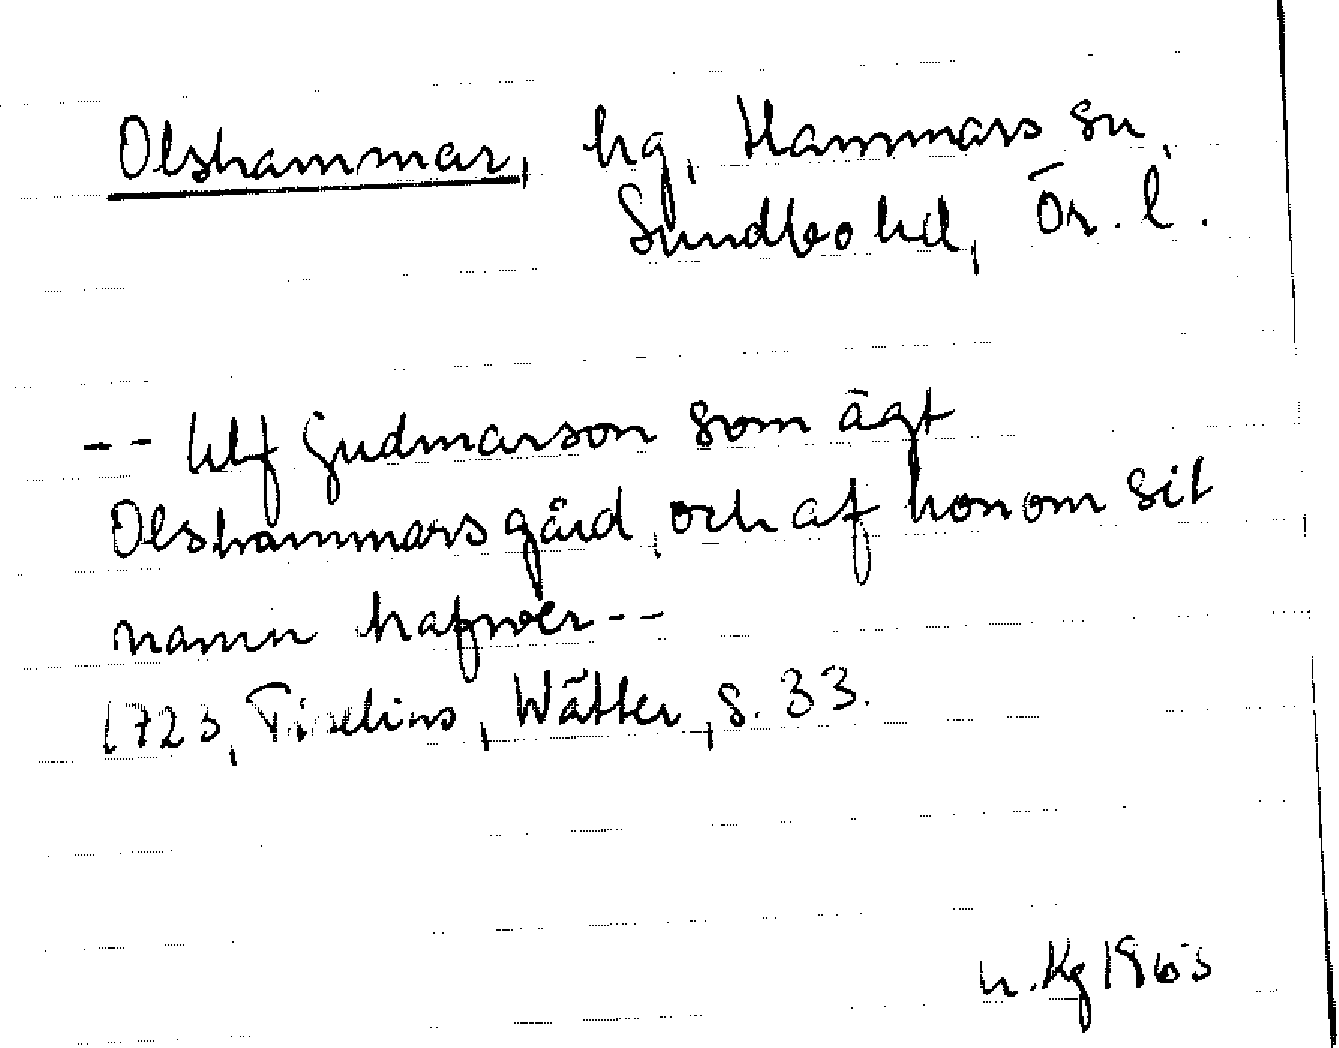 Olshammar, hg, Hammars sn,
Sundbo hd, Ör. l.
-- Ulf Gudmarson som ägt
Olshammarsgård, och af honom sit
namn hafwer--
1723, Tiselius, Wätter, s. 33.
n. Kg 1963